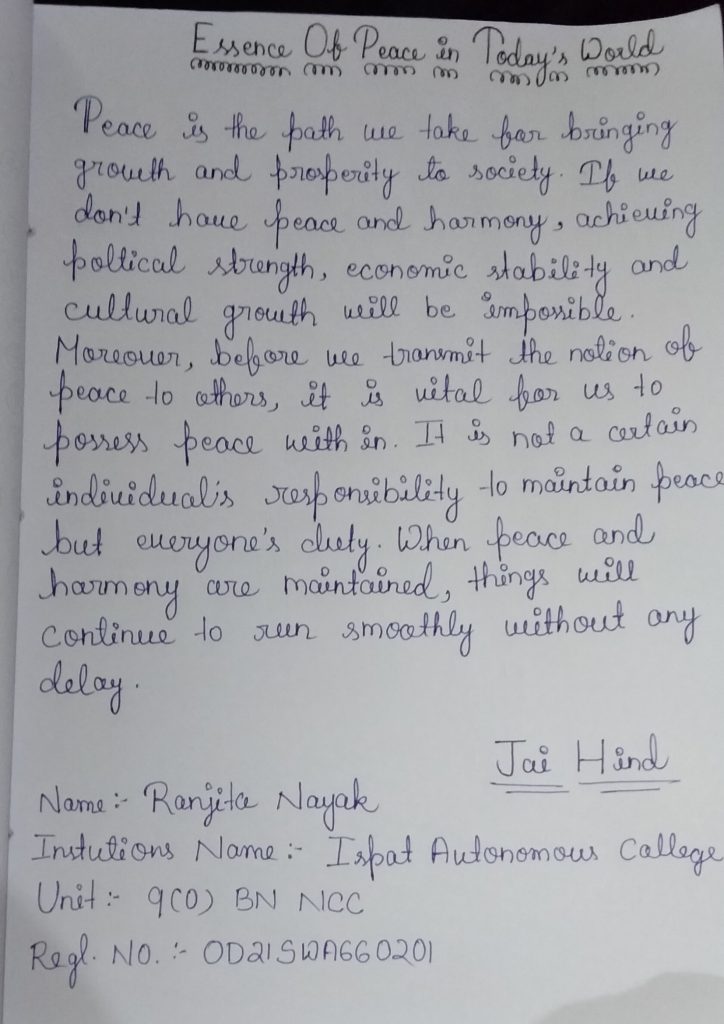 Essence Of Peace in Today's World
Peace is the path we take for bringing
growth and prosperity to society. If we
don't have peace and harmony, achieving
poltical strength, economic stability and
cultural growth will be impossible.
Moreover, before we transmit the notion of
peace to others, it is vital for us to
possess peace with in. It is not a certain
individual's responsibility to maintain peace
but everyone's duty. When peace and
harmony are maintained, things will
continue to run smoothly without any
delay.
Jai Hind
Name:- Ranjita Nayak
Instutions Name:- Ispat Autonomous College
Unit:- 9(O) BN NCC
Regl. NO.:- OD21SWA660201